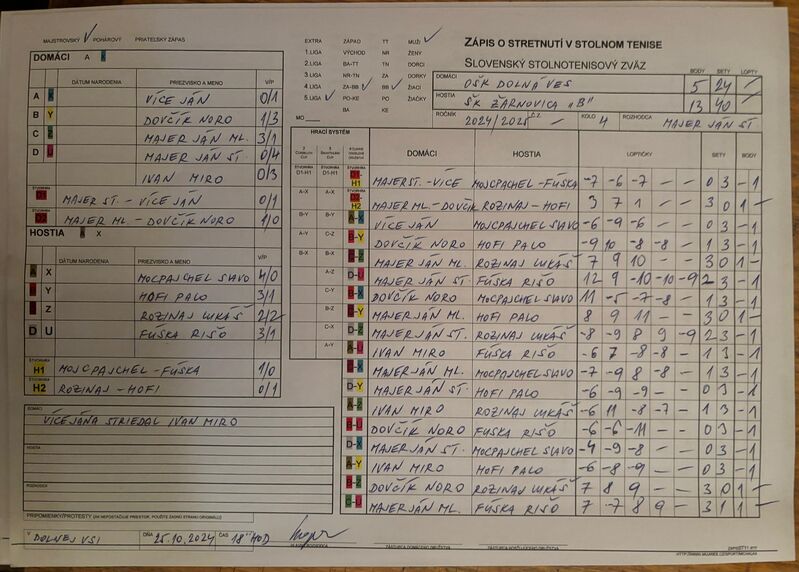 MAJSTROVSKÝ POHÁROVÝ PRIATEĽSKÝ ZÁPAS
DOMÁCI A X
DÁTUM NARODENIA PRIEZVISKO A MENO V/P
A X VÍCE JÁN 0/1
B Y DOVČÍK NORO 1/3
C Z MAJER JÁN ML. 3/1
D U MAJER JÁN ST. 0/4
IVAN MIRO 0/3
ŠTVORHRA
D1 MAJER ST. - VÍCE JÁN 0/1
ŠTVORHRA
D2 MAJER ML. - DOVČÍK NORO 1/0
HOSTIA A X
DÁTUM NARODENIA PRIEZVISKO A MENO V/P
A X MOCPAJCHEL SLAVO 4/0
B Y HOFI PALO 3/1
C Z ROZINAJ LUKÁŠ 2/2
D U FÚSKA RIŠO 3/1
ŠTVORHRA
H1 MOJCPAJCHEL - FÚSKA 1/0
ŠTVORHRA
H2 ROZINAJ - HOFI 0/1
DOMÁCI
VÍCE JÁNA STRIEDAL IVAN MIRO
HOSTIA
ROZHODCA
PRIPOMIENKY/PROTESTY (AK NEPOSTAČUJE PRIESTOR, POUŽITE ZADNÚ STRANU ORIGINÁLU)
V DOLNEJ VSI DŇA 25.10.2024 ČAS 18 00 HOD
EXTRA ZÁPAD TT MUŽI
1.LIGA VÝCHOD NR ŽENY
2.LIGA BA-TT TN DORCI
3.LIGA NR-TN ZA DORKY
4.LIGA ZA-BB BB ŽIACI
5.LIGA PO-KE PO ŽIAČKY
BA KE
MO
ZÁPIS O STRETNUTÍ V STOLNOM TENISE
SLOVENSKÝ STOLNOTENISOVÝ ZVÄZ
BODY SETY LOPTY
DOMÁCI OŠK DOLNÁ VES 5 24 -
HOSTIA ŠK ŽARNOVICA "B" 13 40 -
ROČNÍK 2024/2025 Č.Z. - KOLO 4 ROZHODCA MAJER JÁN ST
HRACÍ SYSTÉM DOMÁCI HOSTIA LOPTIČKY SETY BODY
D1-H1 MAJER ST. - VÍCE MOJCPACHEL - FÚSKA -7 -6 -7 - - 0 3 -1
D2-H2 MAJER ML. - DOVČÍK ROZINAJ - HOFI 3 7 1 - - 3 0 1 -
A-X VÍCE JÁN MOJCPACHEL SLAVO -6 -9 -6 - - 0 3 -1
B-Y DOVČÍK NORO HOFI PALO -9 10 -8 -8 - 1 3 -1
C-Z MAJER JÁN ML. ROZINAJ LUKÁŠ 7 9 10 - - 3 0 1 -
D-U MAJER JÁN ST. FÚSKA RIŠO 12 9 -10 -10 -9 2 3 -1
B-X DOVČÍK NORO MOCPAJCHEL SLAVO 11 -5 -7 -8 - 1 3 -1
C-Y MAJER JÁN ML. HOFI PALO 8 9 11 - - 3 0 1 -
D-Z MAJER JÁN ST. ROZINAJ LUKÁŠ -8 -9 8 9 -9 2 3 -1
A-U IVAN MIRO FÚSKA RIŠO -6 7 -8 -8 - 1 3 -1
C-X MAJER JÁN ML. MOCPAJCHEL SLAVO -7 -9 8 -8 - 1 3 -1
D-Y MAJER JÁN ST. HOFI PALO -6 -9 -9 - - 0 3 -1
A-Z IVAN MIRO ROZINAJ LUKÁŠ -6 11 -8 -7 - 1 3 -1
B-U DOVČÍK NORO FÚSKA RIŠO -6 -6 -11 - - 0 3 -1
D-X MAJER JÁN ST. MOCPAJCHEL SLAVO -4 -9 -8 - - 0 3 -1
A-Y IVAN MIRO HOFI PALO -6 -8 -9 - - 0 3 -1
B-Z DOVČÍK NORO ROZINAJ LUKÁŠ 7 8 9 - - 3 0 1 -
C-U MAJER JÁN ML. FÚSKA RIŠO 7 -7 8 9 - 3 1 1 -